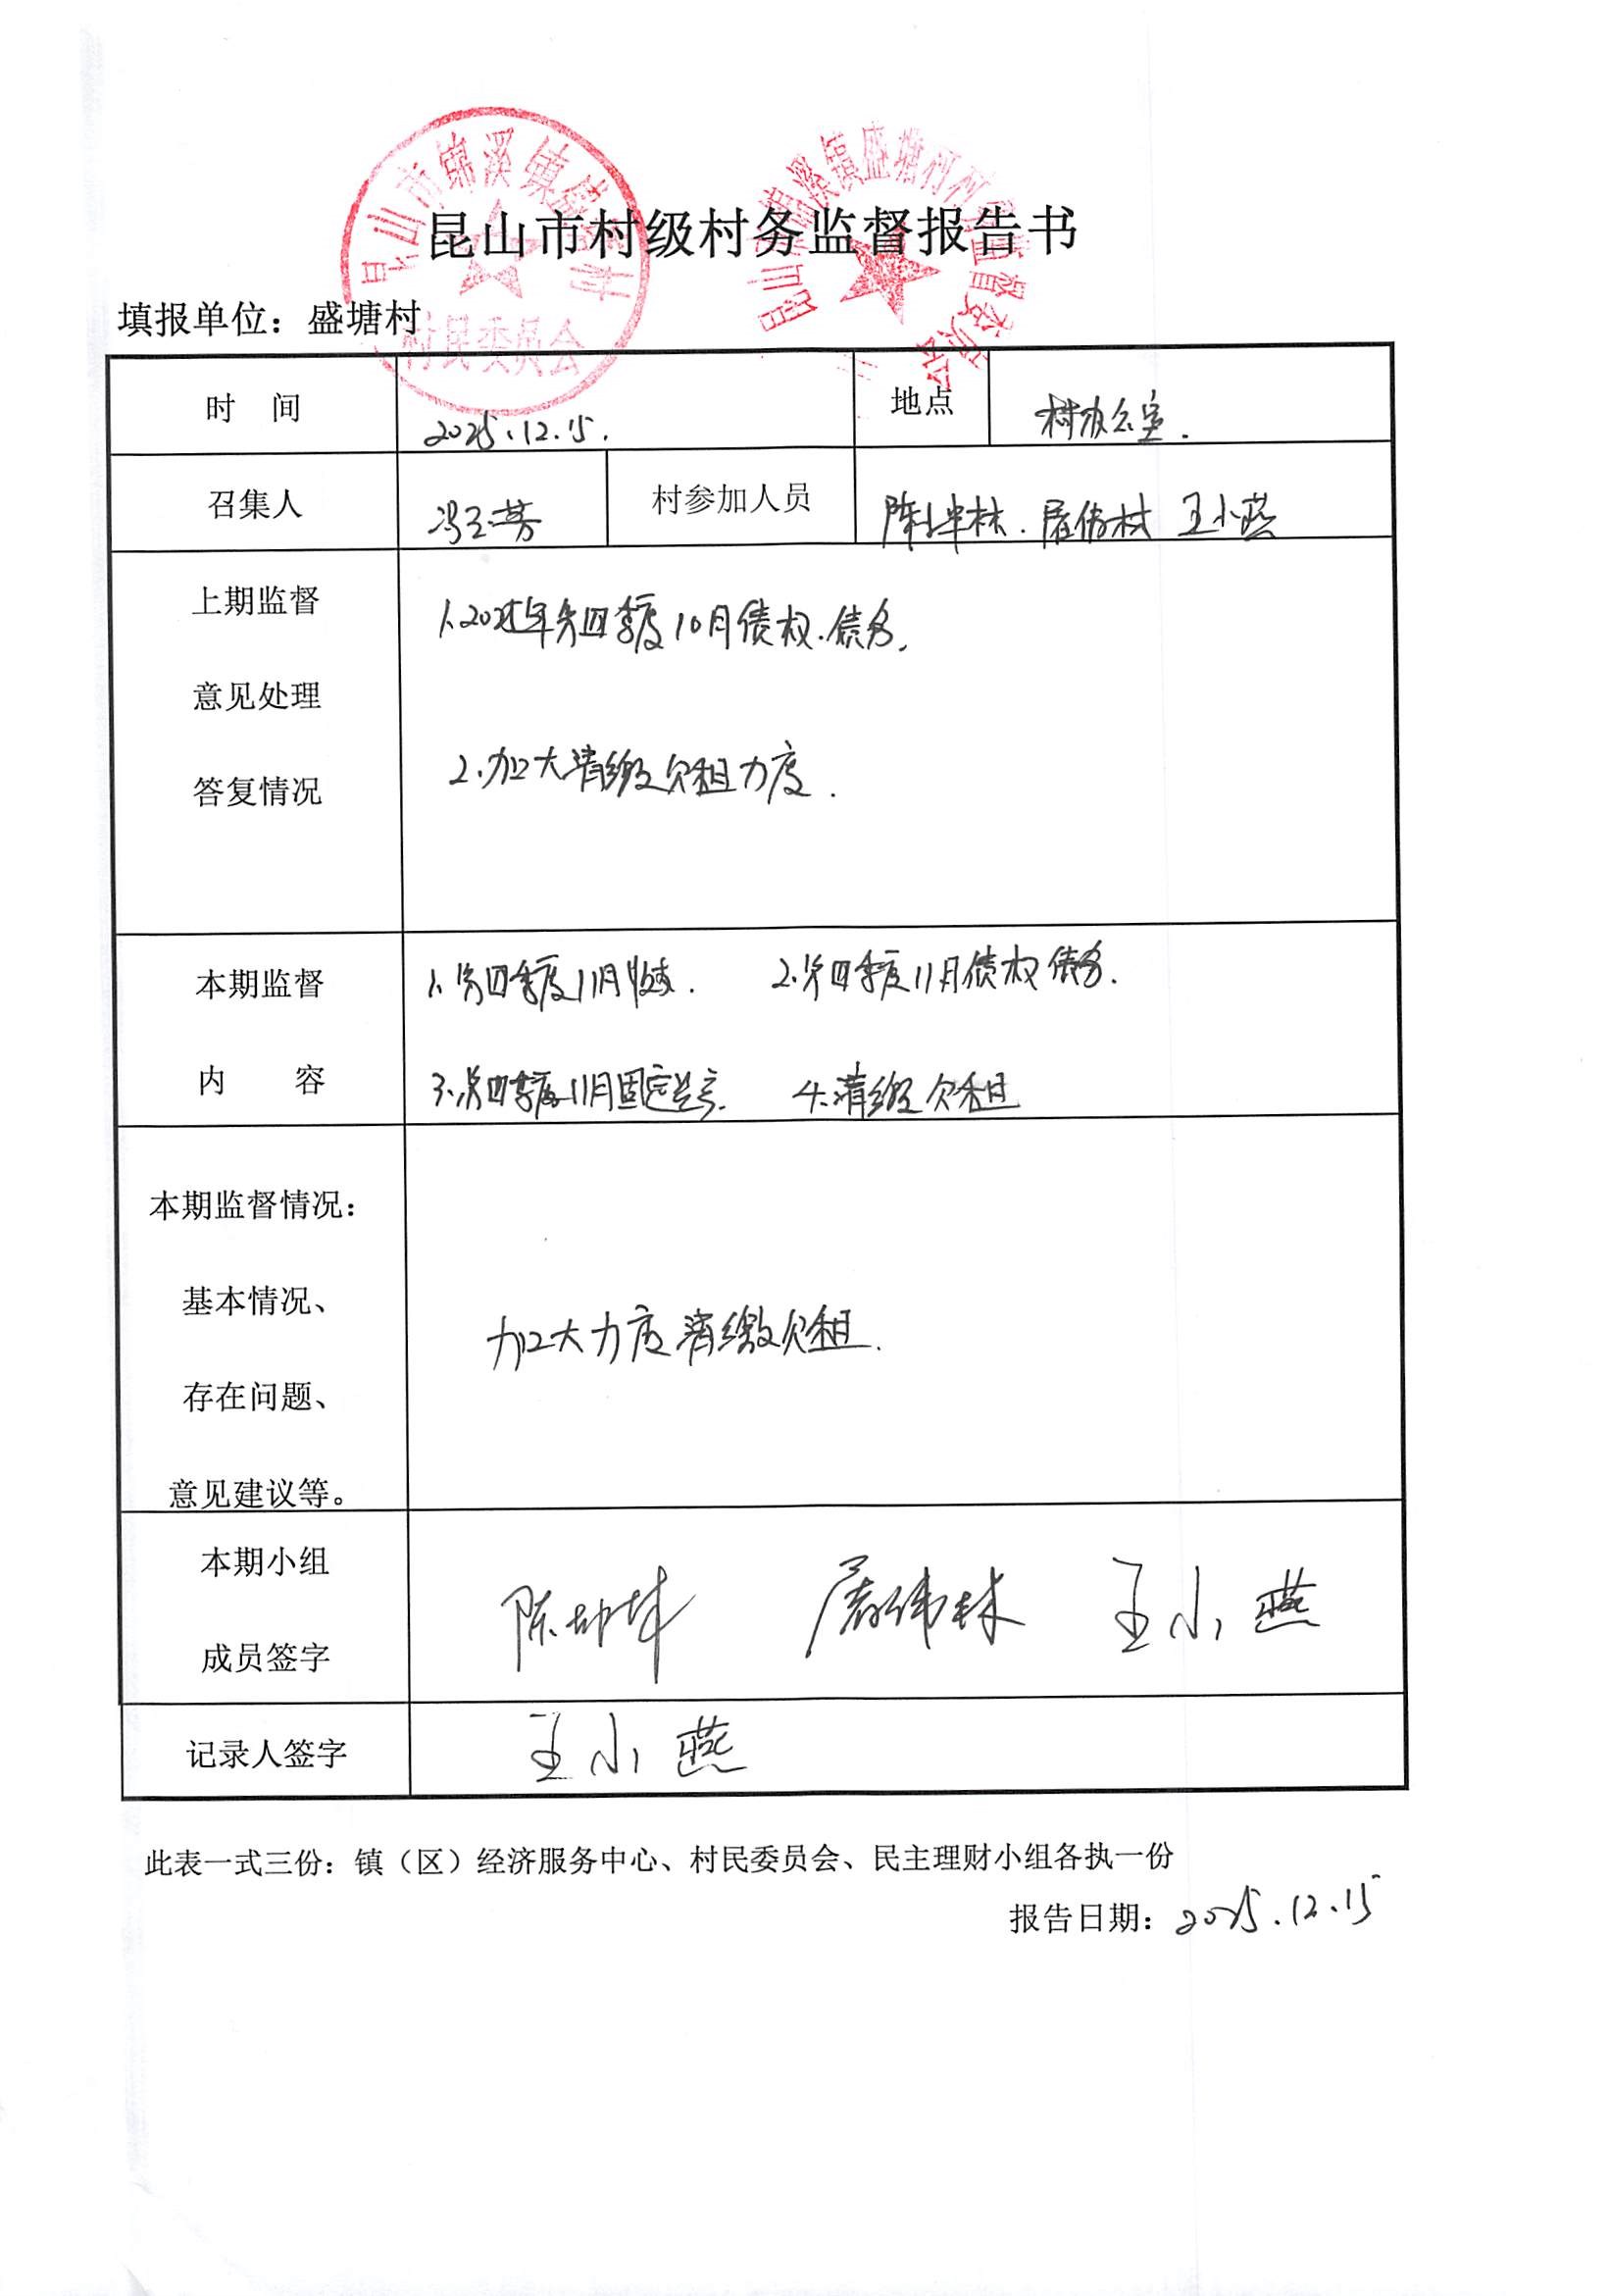 昆山市锦溪镇盛塘村
村民委员会
昆山市锦溪镇盛塘村村务监督委员会
昆山市村级村务监督报告书
填报单位：盛塘村
时 间 2025.12.15. 地点 村办公室.
召集人 冯玉芳 村参加人员 陈坤林. 屠伟林 王小燕
上期监督
意见处理
答复情况
1.2025年第四季度10月债权.债务.
2.加大清缴欠租力度.
本期监督
内 容
1.第四季度11月收支. 2.第四季度11月债权债务.
3.第四季度11月固定 4.清缴欠租
本期监督情况：
基本情况、
存在问题、
意见建议等。
加大力度清缴欠租.
本期小组
成员签字
陈 屠伟林 王小燕
记录人签字 王小燕
此表一式三份：镇（区）经济服务中心、村民委员会、民主理财小组各执一份
报告日期：2025.12.15